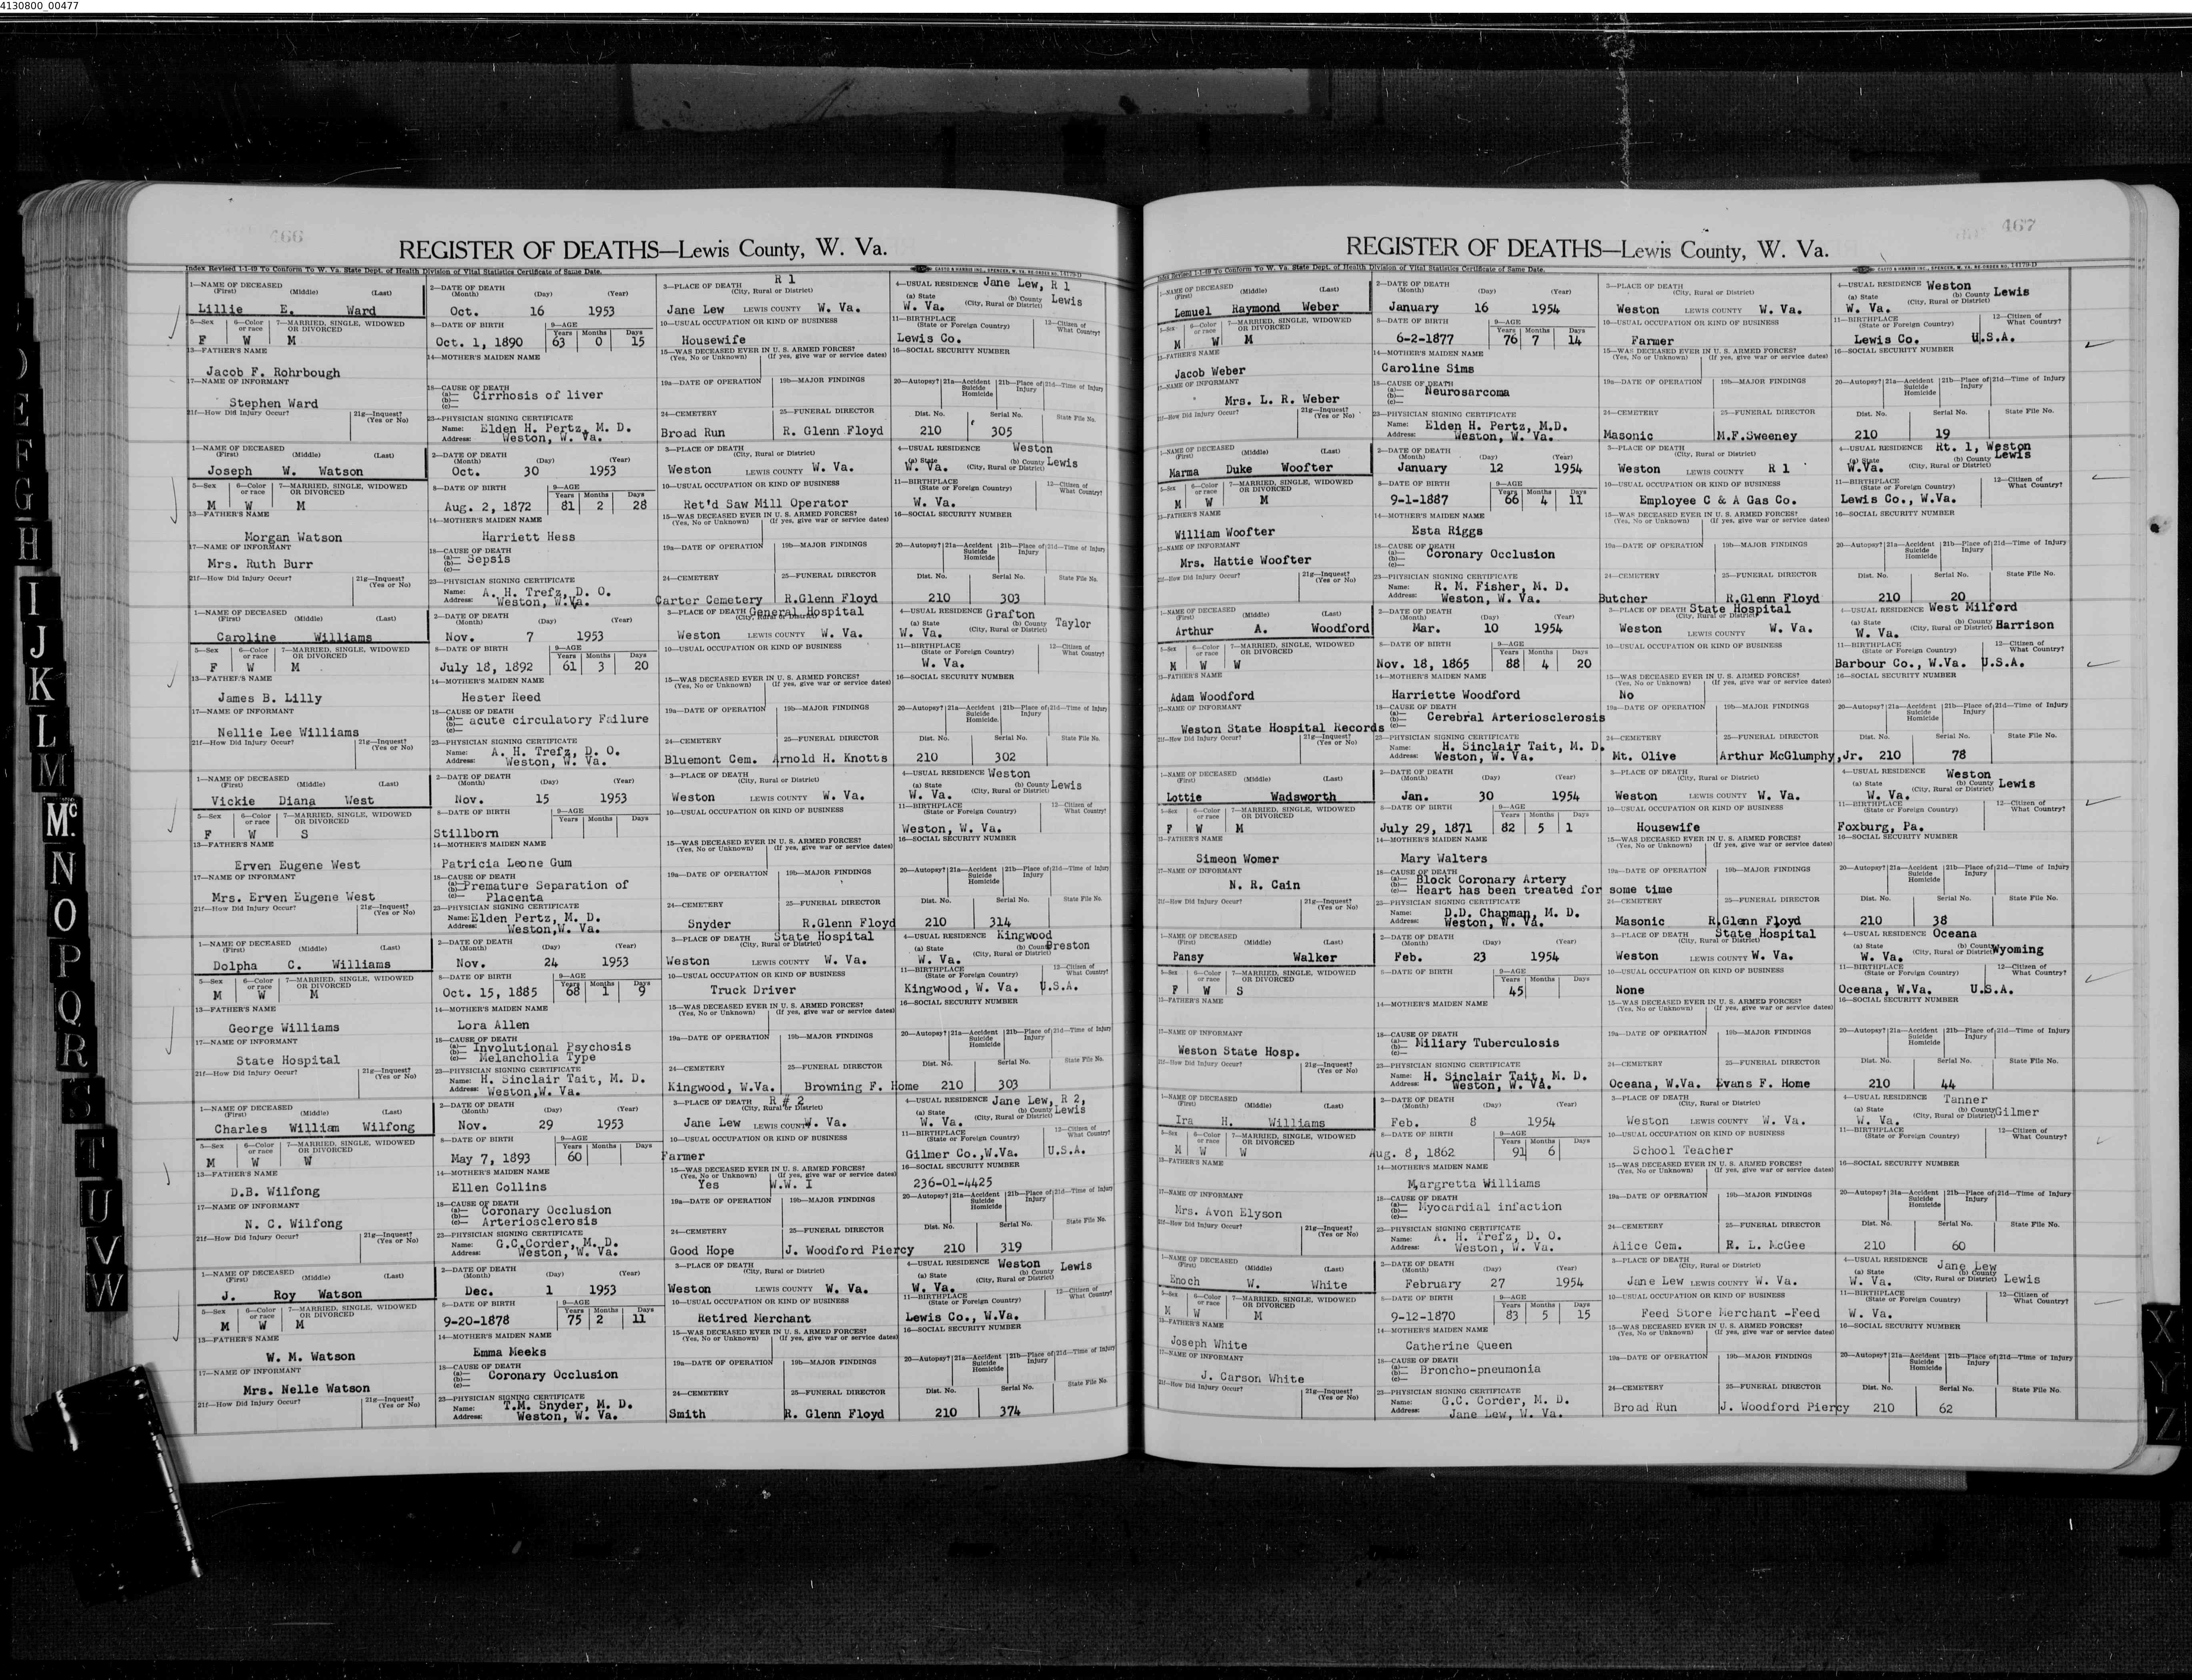 4130800_00477
466
REGISTER OF DEATHS—Lewis County, W. Va.
Index Revised 1-1-49 To Conform To W. Va. State Dept. of Health Division of Vital Statistics Certificate of Same Date.
1—NAME OF DECEASED (First) (Middle) (Last) Lillie E. Ward
2—DATE OF DEATH (Month) (Day) (Year) Oct. 16 1953
3—PLACE OF DEATH (City, Rural or District) R 1 Jane Lew LEWIS COUNTY W. Va.
4—USUAL RESIDENCE Jane Lew, R 1 (a) State W. Va. (b) County Lewis (City, Rural or District)
5—Sex F 6—Color or race W 7—MARRIED, SINGLE, WIDOWED OR DIVORCED M
8—DATE OF BIRTH Oct. 1, 1890 9—AGE Years 63 Months 0 Days 15
10—USUAL OCCUPATION OR KIND OF BUSINESS Housewife
11—BIRTHPLACE (State or Foreign Country) Lewis Co. 12—Citizen of What Country?
13—FATHER'S NAME Jacob F. Rohrbough
14—MOTHER'S MAIDEN NAME
15—WAS DECEASED EVER IN U. S. ARMED FORCES? (Yes, No or Unknown) (If yes, give war or service dates)
16—SOCIAL SECURITY NUMBER
17—NAME OF INFORMANT Stephen Ward
18—CAUSE OF DEATH (a)— (b)— (c)— Cirrhosis of liver
19a—DATE OF OPERATION 19b—MAJOR FINDINGS
20—Autopsy? 21a—Accident Suicide Homicide 21b—Place of Injury 21d—Time of Injury
21f—How Did Injury Occur? 21g—Inquest? (Yes or No)
23—PHYSICIAN SIGNING CERTIFICATE Name: Elden H. Pertz, M. D. Address: Weston, W. Va.
24—CEMETERY Broad Run 25—FUNERAL DIRECTOR R. Glenn Floyd
Dist. No. 210 Serial No. 305 State File No.
1—NAME OF DECEASED (First) (Middle) (Last) Joseph W. Watson
2—DATE OF DEATH (Month) (Day) (Year) Oct. 30 1953
3—PLACE OF DEATH (City, Rural or District) Weston LEWIS COUNTY W. Va.
4—USUAL RESIDENCE Weston (a) State W. Va. (b) County Lewis (City, Rural or District)
5—Sex M 6—Color or race W 7—MARRIED, SINGLE, WIDOWED OR DIVORCED M
8—DATE OF BIRTH Aug. 2, 1872 9—AGE Years 81 Months 2 Days 28
10—USUAL OCCUPATION OR KIND OF BUSINESS Ret'd Saw Mill Operator
11—BIRTHPLACE (State or Foreign Country) W. Va. 12—Citizen of What Country?
13—FATHER'S NAME Morgan Watson
14—MOTHER'S MAIDEN NAME Harriett Hess
15—WAS DECEASED EVER IN U. S. ARMED FORCES? (Yes, No or Unknown) (If yes, give war or service dates)
16—SOCIAL SECURITY NUMBER
17—NAME OF INFORMANT Mrs. Ruth Burr
18—CAUSE OF DEATH (a)— (b)— (c)— Sepsis
19a—DATE OF OPERATION 19b—MAJOR FINDINGS
20—Autopsy? 21a—Accident Suicide Homicide 21b—Place of Injury 21d—Time of Injury
21f—How Did Injury Occur? 21g—Inquest? (Yes or No)
23—PHYSICIAN SIGNING CERTIFICATE Name: A. H. Trefz, D. O. Address: Weston, W.Va.
24—CEMETERY Carter Cemetery 25—FUNERAL DIRECTOR R.Glenn Floyd
Dist. No. 210 Serial No. 303 State File No.
1—NAME OF DECEASED (First) (Middle) (Last) Caroline Williams
2—DATE OF DEATH (Month) (Day) (Year) Nov. 7 1953
3—PLACE OF DEATH General Hospital (City, Rural or District) Weston LEWIS COUNTY W. Va.
4—USUAL RESIDENCE Grafton (a) State W. Va. (b) County Taylor (City, Rural or District)
5—Sex F 6—Color or race W 7—MARRIED, SINGLE, WIDOWED OR DIVORCED M
8—DATE OF BIRTH July 18, 1892 9—AGE Years 61 Months 3 Days 20
10—USUAL OCCUPATION OR KIND OF BUSINESS
11—BIRTHPLACE (State or Foreign Country) W. Va. 12—Citizen of What Country?
13—FATHER'S NAME James B. Lilly
14—MOTHER'S MAIDEN NAME Hester Reed
15—WAS DECEASED EVER IN U. S. ARMED FORCES? (Yes, No or Unknown) (If yes, give war or service dates)
16—SOCIAL SECURITY NUMBER
17—NAME OF INFORMANT Nellie Lee Williams
18—CAUSE OF DEATH (a)— (b)— (c)— acute circulatory Failure
19a—DATE OF OPERATION 19b—MAJOR FINDINGS
20—Autopsy? 21a—Accident Suicide Homicide 21b—Place of Injury 21d—Time of Injury
21f—How Did Injury Occur? 21g—Inquest? (Yes or No)
23—PHYSICIAN SIGNING CERTIFICATE Name: A. H. Trefz, D. O. Address: Weston, W. Va.
24—CEMETERY Bluemont Cem. 25—FUNERAL DIRECTOR Arnold H. Knotts
Dist. No. 210 Serial No. 302 State File No.
1—NAME OF DECEASED (First) (Middle) (Last) Vickie Diana West
2—DATE OF DEATH (Month) (Day) (Year) Nov. 15 1953
3—PLACE OF DEATH (City, Rural or District) Weston LEWIS COUNTY W. Va.
4—USUAL RESIDENCE Weston (a) State W. Va. (b) County Lewis (City, Rural or District)
5—Sex F 6—Color or race W 7—MARRIED, SINGLE, WIDOWED OR DIVORCED S
8—DATE OF BIRTH Stillborn 9—AGE Years Months Days
10—USUAL OCCUPATION OR KIND OF BUSINESS
11—BIRTHPLACE (State or Foreign Country) Weston, W. Va. 12—Citizen of What Country?
13—FATHER'S NAME Erven Eugene West
14—MOTHER'S MAIDEN NAME Patricia Leone Gum
15—WAS DECEASED EVER IN U. S. ARMED FORCES? (Yes, No or Unknown) (If yes, give war or service dates)
16—SOCIAL SECURITY NUMBER
17—NAME OF INFORMANT Mrs. Erven Eugene West
18—CAUSE OF DEATH (a)— (b)— (c)— Premature Separation of Placenta
19a—DATE OF OPERATION 19b—MAJOR FINDINGS
20—Autopsy? 21a—Accident Suicide Homicide 21b—Place of Injury 21d—Time of Injury
21f—How Did Injury Occur? 21g—Inquest? (Yes or No)
23—PHYSICIAN SIGNING CERTIFICATE Name: Elden Pertz, M. D. Address: Weston,W. Va.
24—CEMETERY Snyder 25—FUNERAL DIRECTOR R.Glenn Floyd
Dist. No. 210 Serial No. 314 State File No.
1—NAME OF DECEASED (First) (Middle) (Last) Dolpha C. Williams
2—DATE OF DEATH (Month) (Day) (Year) Nov. 24 1953
3—PLACE OF DEATH State Hospital (City, Rural or District) Weston LEWIS COUNTY W. Va.
4—USUAL RESIDENCE Kingwood (a) State W. Va. (b) County Preston (City, Rural or District)
5—Sex M 6—Color or race W 7—MARRIED, SINGLE, WIDOWED OR DIVORCED M
8—DATE OF BIRTH Oct. 15, 1885 9—AGE Years 68 Months 1 Days 9
10—USUAL OCCUPATION OR KIND OF BUSINESS Truck Driver
11—BIRTHPLACE (State or Foreign Country) Kingwood, W. Va. 12—Citizen of What Country? U.S.A.
13—FATHER'S NAME George Williams
14—MOTHER'S MAIDEN NAME Lora Allen
15—WAS DECEASED EVER IN U. S. ARMED FORCES? (Yes, No or Unknown) (If yes, give war or service dates)
16—SOCIAL SECURITY NUMBER
17—NAME OF INFORMANT State Hospital
18—CAUSE OF DEATH (a)— (b)— (c)— Involutional Psychosis Melancholia Type
19a—DATE OF OPERATION 19b—MAJOR FINDINGS
20—Autopsy? 21a—Accident Suicide Homicide 21b—Place of Injury 21d—Time of Injury
21f—How Did Injury Occur? 21g—Inquest? (Yes or No)
23—PHYSICIAN SIGNING CERTIFICATE Name: H. Sinclair Tait, M. D. Address: Weston,W. Va.
24—CEMETERY Kingwood, W.Va. 25—FUNERAL DIRECTOR Browning F. Home
Dist. No. 210 Serial No. 303 State File No.
1—NAME OF DECEASED (First) (Middle) (Last) Charles William Wilfong
2—DATE OF DEATH (Month) (Day) (Year) Nov. 29 1953
3—PLACE OF DEATH R # 2 (City, Rural or District) Jane Lew LEWIS COUNTY W. Va.
4—USUAL RESIDENCE Jane Lew, R 2, (a) State W. Va. (b) County Lewis (City, Rural or District)
5—Sex M 6—Color or race W 7—MARRIED, SINGLE, WIDOWED OR DIVORCED W
8—DATE OF BIRTH May 7, 1893 9—AGE Years 60 Months Days
10—USUAL OCCUPATION OR KIND OF BUSINESS Farmer
11—BIRTHPLACE (State or Foreign Country) Gilmer Co.,W.Va. 12—Citizen of What Country? U.S.A.
13—FATHER'S NAME D.B. Wilfong
14—MOTHER'S MAIDEN NAME Ellen Collins
15—WAS DECEASED EVER IN U. S. ARMED FORCES? (Yes, No or Unknown) Yes (If yes, give war or service dates) W.W. I
16—SOCIAL SECURITY NUMBER 236-01-4425
17—NAME OF INFORMANT N. C. Wilfong
18—CAUSE OF DEATH (a)— (b)— (c)— Coronary Occlusion Arteriosclerosis
19a—DATE OF OPERATION 19b—MAJOR FINDINGS
20—Autopsy? 21a—Accident Suicide Homicide 21b—Place of Injury 21d—Time of Injury
21f—How Did Injury Occur? 21g—Inquest? (Yes or No)
23—PHYSICIAN SIGNING CERTIFICATE Name: G.C.Corder, M. D. Address: Weston, W. Va.
24—CEMETERY Good Hope 25—FUNERAL DIRECTOR J. Woodford Piercy
Dist. No. 210 Serial No. 319 State File No.
1—NAME OF DECEASED (First) (Middle) (Last) J. Roy Watson
2—DATE OF DEATH (Month) (Day) (Year) Dec. 1 1953
3—PLACE OF DEATH (City, Rural or District) Weston LEWIS COUNTY W. Va.
4—USUAL RESIDENCE Weston (a) State W. Va. (b) County Lewis (City, Rural or District)
5—Sex M 6—Color or race W 7—MARRIED, SINGLE, WIDOWED OR DIVORCED M
8—DATE OF BIRTH 9-20-1878 9—AGE Years 75 Months 2 Days 11
10—USUAL OCCUPATION OR KIND OF BUSINESS Retired Merchant
11—BIRTHPLACE (State or Foreign Country) Lewis Co., W.Va. 12—Citizen of What Country?
13—FATHER'S NAME W. M. Watson
14—MOTHER'S MAIDEN NAME Emma Meeks
15—WAS DECEASED EVER IN U. S. ARMED FORCES? (Yes, No or Unknown) (If yes, give war or service dates)
16—SOCIAL SECURITY NUMBER
17—NAME OF INFORMANT Mrs. Nelle Watson
18—CAUSE OF DEATH (a)— (b)— (c)— Coronary Occlusion
19a—DATE OF OPERATION 19b—MAJOR FINDINGS
20—Autopsy? 21a—Accident Suicide Homicide 21b—Place of Injury 21d—Time of Injury
21f—How Did Injury Occur? 21g—Inquest? (Yes or No)
23—PHYSICIAN SIGNING CERTIFICATE Name: T.M. Snyder, M. D. Address: Weston, W. Va.
24—CEMETERY Smith 25—FUNERAL DIRECTOR R. Glenn Floyd
Dist. No. 210 Serial No. 374 State File No.
467
REGISTER OF DEATHS—Lewis County, W. Va.
Index Revised 1-1-49 To Conform To W. Va. State Dept. of Health Division of Vital Statistics Certificate of Same Date.
1—NAME OF DECEASED (First) (Middle) (Last) Lemuel Raymond Weber
2—DATE OF DEATH (Month) (Day) (Year) January 16 1954
3—PLACE OF DEATH (City, Rural or District) Weston LEWIS COUNTY W. Va.
4—USUAL RESIDENCE Weston (a) State W. Va. (b) County Lewis (City, Rural or District)
5—Sex M 6—Color or race W 7—MARRIED, SINGLE, WIDOWED OR DIVORCED M
8—DATE OF BIRTH 6-2-1877 9—AGE Years 76 Months 7 Days 14
10—USUAL OCCUPATION OR KIND OF BUSINESS Farmer
11—BIRTHPLACE (State or Foreign Country) Lewis Co. 12—Citizen of What Country? U.S.A.
13—FATHER'S NAME Jacob Weber
14—MOTHER'S MAIDEN NAME Caroline Sims
15—WAS DECEASED EVER IN U. S. ARMED FORCES? (Yes, No or Unknown) (If yes, give war or service dates)
16—SOCIAL SECURITY NUMBER
17—NAME OF INFORMANT Mrs. L. R. Weber
18—CAUSE OF DEATH (a)— (b)— (c)— Neurosarcoma
19a—DATE OF OPERATION 19b—MAJOR FINDINGS
20—Autopsy? 21a—Accident Suicide Homicide 21b—Place of Injury 21d—Time of Injury
21f—How Did Injury Occur? 21g—Inquest? (Yes or No)
23—PHYSICIAN SIGNING CERTIFICATE Name: Elden H. Pertz, M.D. Address: Weston, W. Va.
24—CEMETERY Masonic 25—FUNERAL DIRECTOR M.F.Sweeney
Dist. No. 210 Serial No. 19 State File No.
1—NAME OF DECEASED (First) (Middle) (Last) Marma Duke Woofter
2—DATE OF DEATH (Month) (Day) (Year) January 12 1954
3—PLACE OF DEATH (City, Rural or District) Weston LEWIS COUNTY R 1
4—USUAL RESIDENCE Rt. 1, Weston (a) State W.Va. (b) County Lewis (City, Rural or District)
5—Sex M 6—Color or race W 7—MARRIED, SINGLE, WIDOWED OR DIVORCED M
8—DATE OF BIRTH 9-1-1887 9—AGE Years 66 Months 4 Days 11
10—USUAL OCCUPATION OR KIND OF BUSINESS Employee C & A Gas Co.
11—BIRTHPLACE (State or Foreign Country) Lewis Co., W.Va. 12—Citizen of What Country?
13—FATHER'S NAME William Woofter
14—MOTHER'S MAIDEN NAME Esta Riggs
15—WAS DECEASED EVER IN U. S. ARMED FORCES? (Yes, No or Unknown) (If yes, give war or service dates)
16—SOCIAL SECURITY NUMBER
17—NAME OF INFORMANT Mrs. Hattie Woofter
18—CAUSE OF DEATH (a)— (b)— (c)— Coronary Occlusion
19a—DATE OF OPERATION 19b—MAJOR FINDINGS
20—Autopsy? 21a—Accident Suicide Homicide 21b—Place of Injury 21d—Time of Injury
21f—How Did Injury Occur? 21g—Inquest? (Yes or No)
23—PHYSICIAN SIGNING CERTIFICATE Name: R. M. Fisher, M. D. Address: Weston, W. Va.
24—CEMETERY Butcher 25—FUNERAL DIRECTOR R.Glenn Floyd
Dist. No. 210 Serial No. 20 State File No.
1—NAME OF DECEASED (First) (Middle) (Last) Arthur A. Woodford
2—DATE OF DEATH (Month) (Day) (Year) Mar. 10 1954
3—PLACE OF DEATH State Hospital (City, Rural or District) Weston LEWIS COUNTY W. Va.
4—USUAL RESIDENCE West Milford (a) State W. Va. (b) County Harrison (City, Rural or District)
5—Sex M 6—Color or race W 7—MARRIED, SINGLE, WIDOWED OR DIVORCED W
8—DATE OF BIRTH Nov. 18, 1865 9—AGE Years 88 Months 4 Days 20
10—USUAL OCCUPATION OR KIND OF BUSINESS
11—BIRTHPLACE (State or Foreign Country) Barbour Co., W.Va. 12—Citizen of What Country? U.S.A.
13—FATHER'S NAME Adam Woodford
14—MOTHER'S MAIDEN NAME Harriette Woodford
15—WAS DECEASED EVER IN U. S. ARMED FORCES? (Yes, No or Unknown) No (If yes, give war or service dates)
16—SOCIAL SECURITY NUMBER
17—NAME OF INFORMANT Weston State Hospital Records
18—CAUSE OF DEATH (a)— (b)— (c)— Cerebral Arteriosclerosis
19a—DATE OF OPERATION 19b—MAJOR FINDINGS
20—Autopsy? 21a—Accident Suicide Homicide 21b—Place of Injury 21d—Time of Injury
21f—How Did Injury Occur? 21g—Inquest? (Yes or No)
23—PHYSICIAN SIGNING CERTIFICATE Name: H. Sinclair Tait, M. D. Address: Weston, W. Va.
24—CEMETERY Mt. Olive 25—FUNERAL DIRECTOR Arthur McGlumphy,Jr.
Dist. No. 210 Serial No. 78 State File No.
1—NAME OF DECEASED (First) (Middle) (Last) Lottie Wadsworth
2—DATE OF DEATH (Month) (Day) (Year) Jan. 30 1954
3—PLACE OF DEATH (City, Rural or District) Weston LEWIS COUNTY W. Va.
4—USUAL RESIDENCE Weston (a) State W. Va. (b) County Lewis (City, Rural or District)
5—Sex F 6—Color or race W 7—MARRIED, SINGLE, WIDOWED OR DIVORCED M
8—DATE OF BIRTH July 29, 1871 9—AGE Years 82 Months 5 Days 1
10—USUAL OCCUPATION OR KIND OF BUSINESS Housewife
11—BIRTHPLACE (State or Foreign Country) Foxburg, Pa. 12—Citizen of What Country?
13—FATHER'S NAME Simeon Womer
14—MOTHER'S MAIDEN NAME Mary Walters
15—WAS DECEASED EVER IN U. S. ARMED FORCES? (Yes, No or Unknown) (If yes, give war or service dates)
16—SOCIAL SECURITY NUMBER
17—NAME OF INFORMANT N. R. Cain
18—CAUSE OF DEATH (a)— (b)— (c)— Block Coronary Artery Heart has been treated for some time
19a—DATE OF OPERATION 19b—MAJOR FINDINGS
20—Autopsy? 21a—Accident Suicide Homicide 21b—Place of Injury 21d—Time of Injury
21f—How Did Injury Occur? 21g—Inquest? (Yes or No)
23—PHYSICIAN SIGNING CERTIFICATE Name: D.D. Chapman, M. D. Address: Weston, W. Va.
24—CEMETERY Masonic 25—FUNERAL DIRECTOR R.Glenn Floyd
Dist. No. 210 Serial No. 38 State File No.
1—NAME OF DECEASED (First) (Middle) (Last) Pansy Walker
2—DATE OF DEATH (Month) (Day) (Year) Feb. 23 1954
3—PLACE OF DEATH State Hospital (City, Rural or District) Weston LEWIS COUNTY W. Va.
4—USUAL RESIDENCE Oceana (a) State W. Va. (b) County Wyoming (City, Rural or District)
5—Sex F 6—Color or race W 7—MARRIED, SINGLE, WIDOWED OR DIVORCED S
8—DATE OF BIRTH 9—AGE Years 45 Months Days
10—USUAL OCCUPATION OR KIND OF BUSINESS None
11—BIRTHPLACE (State or Foreign Country) Oceana, W.Va. 12—Citizen of What Country? U.S.A.
13—FATHER'S NAME
14—MOTHER'S MAIDEN NAME
15—WAS DECEASED EVER IN U. S. ARMED FORCES? (Yes, No or Unknown) (If yes, give war or service dates)
16—SOCIAL SECURITY NUMBER
17—NAME OF INFORMANT Weston State Hosp.
18—CAUSE OF DEATH (a)— (b)— (c)— Miliary Tuberculosis
19a—DATE OF OPERATION 19b—MAJOR FINDINGS
20—Autopsy? 21a—Accident Suicide Homicide 21b—Place of Injury 21d—Time of Injury
21f—How Did Injury Occur? 21g—Inquest? (Yes or No)
23—PHYSICIAN SIGNING CERTIFICATE Name: H. Sinclair Tait, M. D. Address: Weston, W. Va.
24—CEMETERY Oceana, W.Va. 25—FUNERAL DIRECTOR Evans F. Home
Dist. No. 210 Serial No. 44 State File No.
1—NAME OF DECEASED (First) (Middle) (Last) Ira H. Williams
2—DATE OF DEATH (Month) (Day) (Year) Feb. 8 1954
3—PLACE OF DEATH (City, Rural or District) Weston LEWIS COUNTY W. Va.
4—USUAL RESIDENCE Tanner (a) State W. Va. (b) County Gilmer (City, Rural or District)
5—Sex M 6—Color or race W 7—MARRIED, SINGLE, WIDOWED OR DIVORCED W
8—DATE OF BIRTH Aug. 8, 1862 9—AGE Years 91 Months 6 Days
10—USUAL OCCUPATION OR KIND OF BUSINESS School Teacher
11—BIRTHPLACE (State or Foreign Country) 12—Citizen of What Country?
13—FATHER'S NAME
14—MOTHER'S MAIDEN NAME Margretta Williams
15—WAS DECEASED EVER IN U. S. ARMED FORCES? (Yes, No or Unknown) (If yes, give war or service dates)
16—SOCIAL SECURITY NUMBER
17—NAME OF INFORMANT Mrs. Avon Elyson
18—CAUSE OF DEATH (a)— (b)— (c)— Myocardial infaction
19a—DATE OF OPERATION 19b—MAJOR FINDINGS
20—Autopsy? 21a—Accident Suicide Homicide 21b—Place of Injury 21d—Time of Injury
21f—How Did Injury Occur? 21g—Inquest? (Yes or No)
23—PHYSICIAN SIGNING CERTIFICATE Name: A. H. Trefz, D. O. Address: Weston, W. Va.
24—CEMETERY Alice Cem. 25—FUNERAL DIRECTOR R. L. McGee
Dist. No. 210 Serial No. 60 State File No.
1—NAME OF DECEASED (First) (Middle) (Last) Enoch W. White
2—DATE OF DEATH (Month) (Day) (Year) February 27 1954
3—PLACE OF DEATH (City, Rural or District) Jane Lew LEWIS COUNTY W. Va.
4—USUAL RESIDENCE Jane Lew (a) State W. Va. (b) County Lewis (City, Rural or District)
5—Sex M 6—Color or race W 7—MARRIED, SINGLE, WIDOWED OR DIVORCED M
8—DATE OF BIRTH 9-12-1870 9—AGE Years 83 Months 5 Days 15
10—USUAL OCCUPATION OR KIND OF BUSINESS Feed Store Merchant -Feed
11—BIRTHPLACE (State or Foreign Country) W. Va. 12—Citizen of What Country?
13—FATHER'S NAME Joseph White
14—MOTHER'S MAIDEN NAME Catherine Queen
15—WAS DECEASED EVER IN U. S. ARMED FORCES? (Yes, No or Unknown) (If yes, give war or service dates)
16—SOCIAL SECURITY NUMBER
17—NAME OF INFORMANT J. Carson White
18—CAUSE OF DEATH (a)— (b)— (c)— Broncho-pneumonia
19a—DATE OF OPERATION 19b—MAJOR FINDINGS
20—Autopsy? 21a—Accident Suicide Homicide 21b—Place of Injury 21d—Time of Injury
21f—How Did Injury Occur? 21g—Inquest? (Yes or No)
23—PHYSICIAN SIGNING CERTIFICATE Name: G.C. Corder, M. D. Address: Jane Lew, W. Va.
24—CEMETERY Broad Run 25—FUNERAL DIRECTOR J. Woodford Piercy
Dist. No. 210 Serial No. 62 State File No.
E
F
G
H
I
J
K
L
M
Mc
N
O
P
Q
R
S
T
U
V
W
X
Y
Z